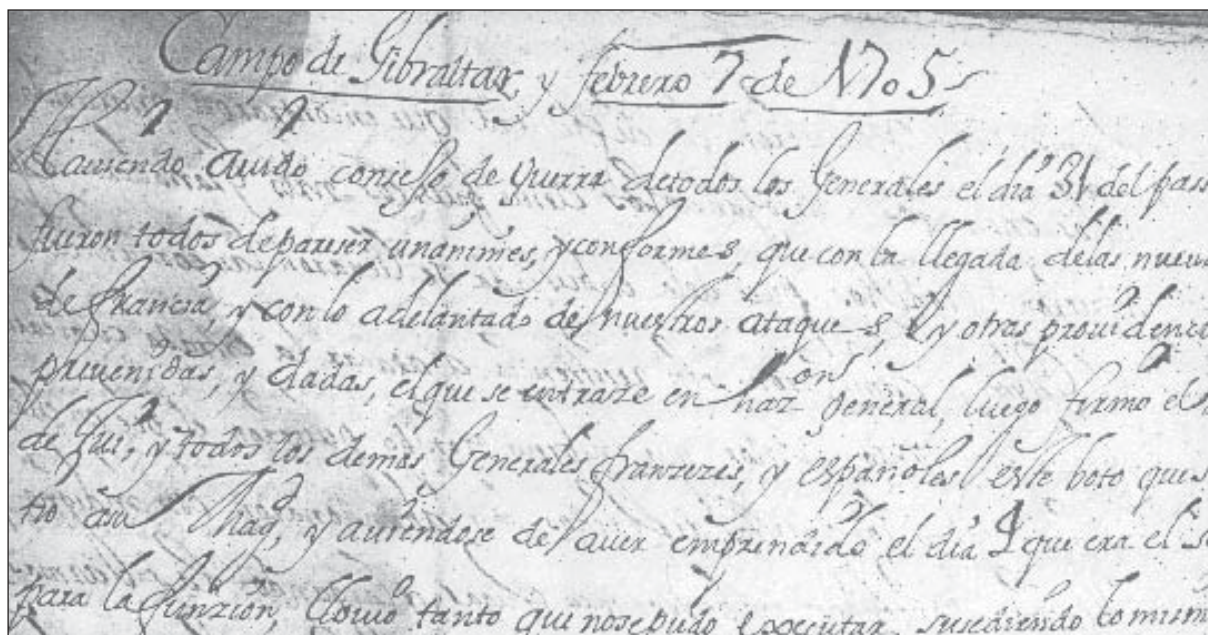 Campo de Gibraltar, y febrero 7 de 1705
Hauiendo auido consejo de Guerra de todos los Generales el dia 31 del pass
fueron todos de pareser unanimes, y conformes, que con la llegada de las nueu
de francia, y con lo adelantado de nuestros ataques, y otras prouidenc
preuenidas, y dadas, el que se entrase en general, luego firmó el
de y todos los demas Generales franzezes, y españoles este boto que
tio a su Magd, y auiendose de auer emprendido el dia que era el
para la funzion, llouio tanto que no se pudo executar, susediendo lo mism